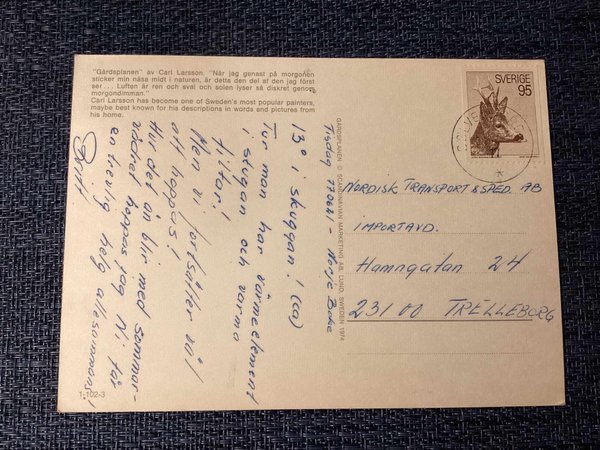 "Gårdsplanen" av Carl Larsson. "När jag genast på morgonen
sticker min näsa midt i naturen, är detta den del af den jag först
ser... Luften är ren och sval och solen lyser så diskret genom
morgondimman."
Carl Larsson has become one of Sweden's most popular painters,
maybe best known for his descriptions in words and pictures from
his home.
SVERIGE
95
GÅRDSPLANEN © SCANDINAVIAN MARKETING AB, LUND, SWEDEN 1974
Tisdag 770621 - Norje Boke
13° i skuggan! (ca)
Tur man har värmeelement
i stugan och varma
filtar!
Men vi fortsätter väl
att hoppas!
Hur det än blir med sommar-
vädret hoppas jag Ni får
en trevlig helg allesammans!
Britt
NORDISK TRANSPORT & SPED. AB
IMPORTAVD.
Hamngatan 24
231 00 TRELLEBORG
1-102-3